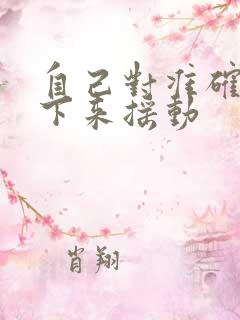 自己對准確
下来摇動
肖翔